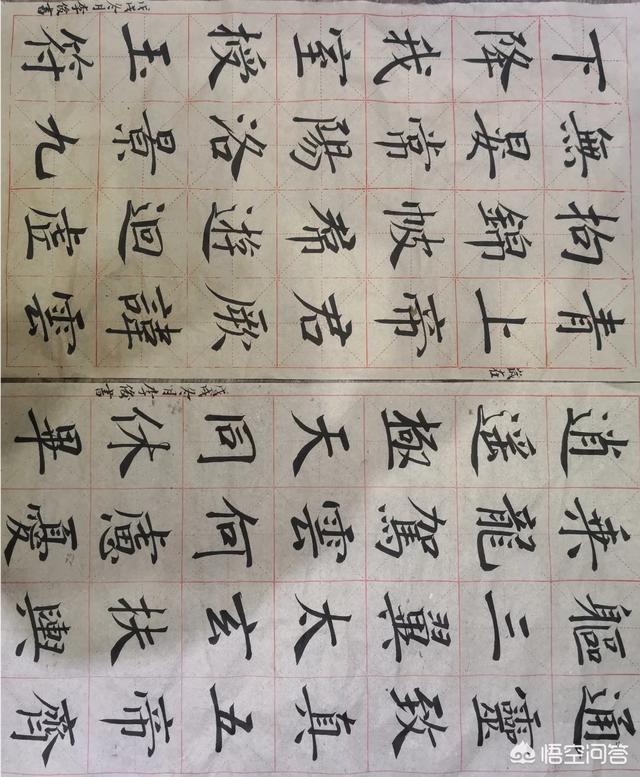 青上帝君厥諱雲
拘錦帔帬遊迴虛
無晏常陽洛景九
下降我室授玉符
戊戌冬月李俊書
通靈致真五帝齊
軀三翼太玄扶輿
乘龍駕雲何慮憂
逍遙極天同休畢
戊戌冬月李俊書
悟空问答